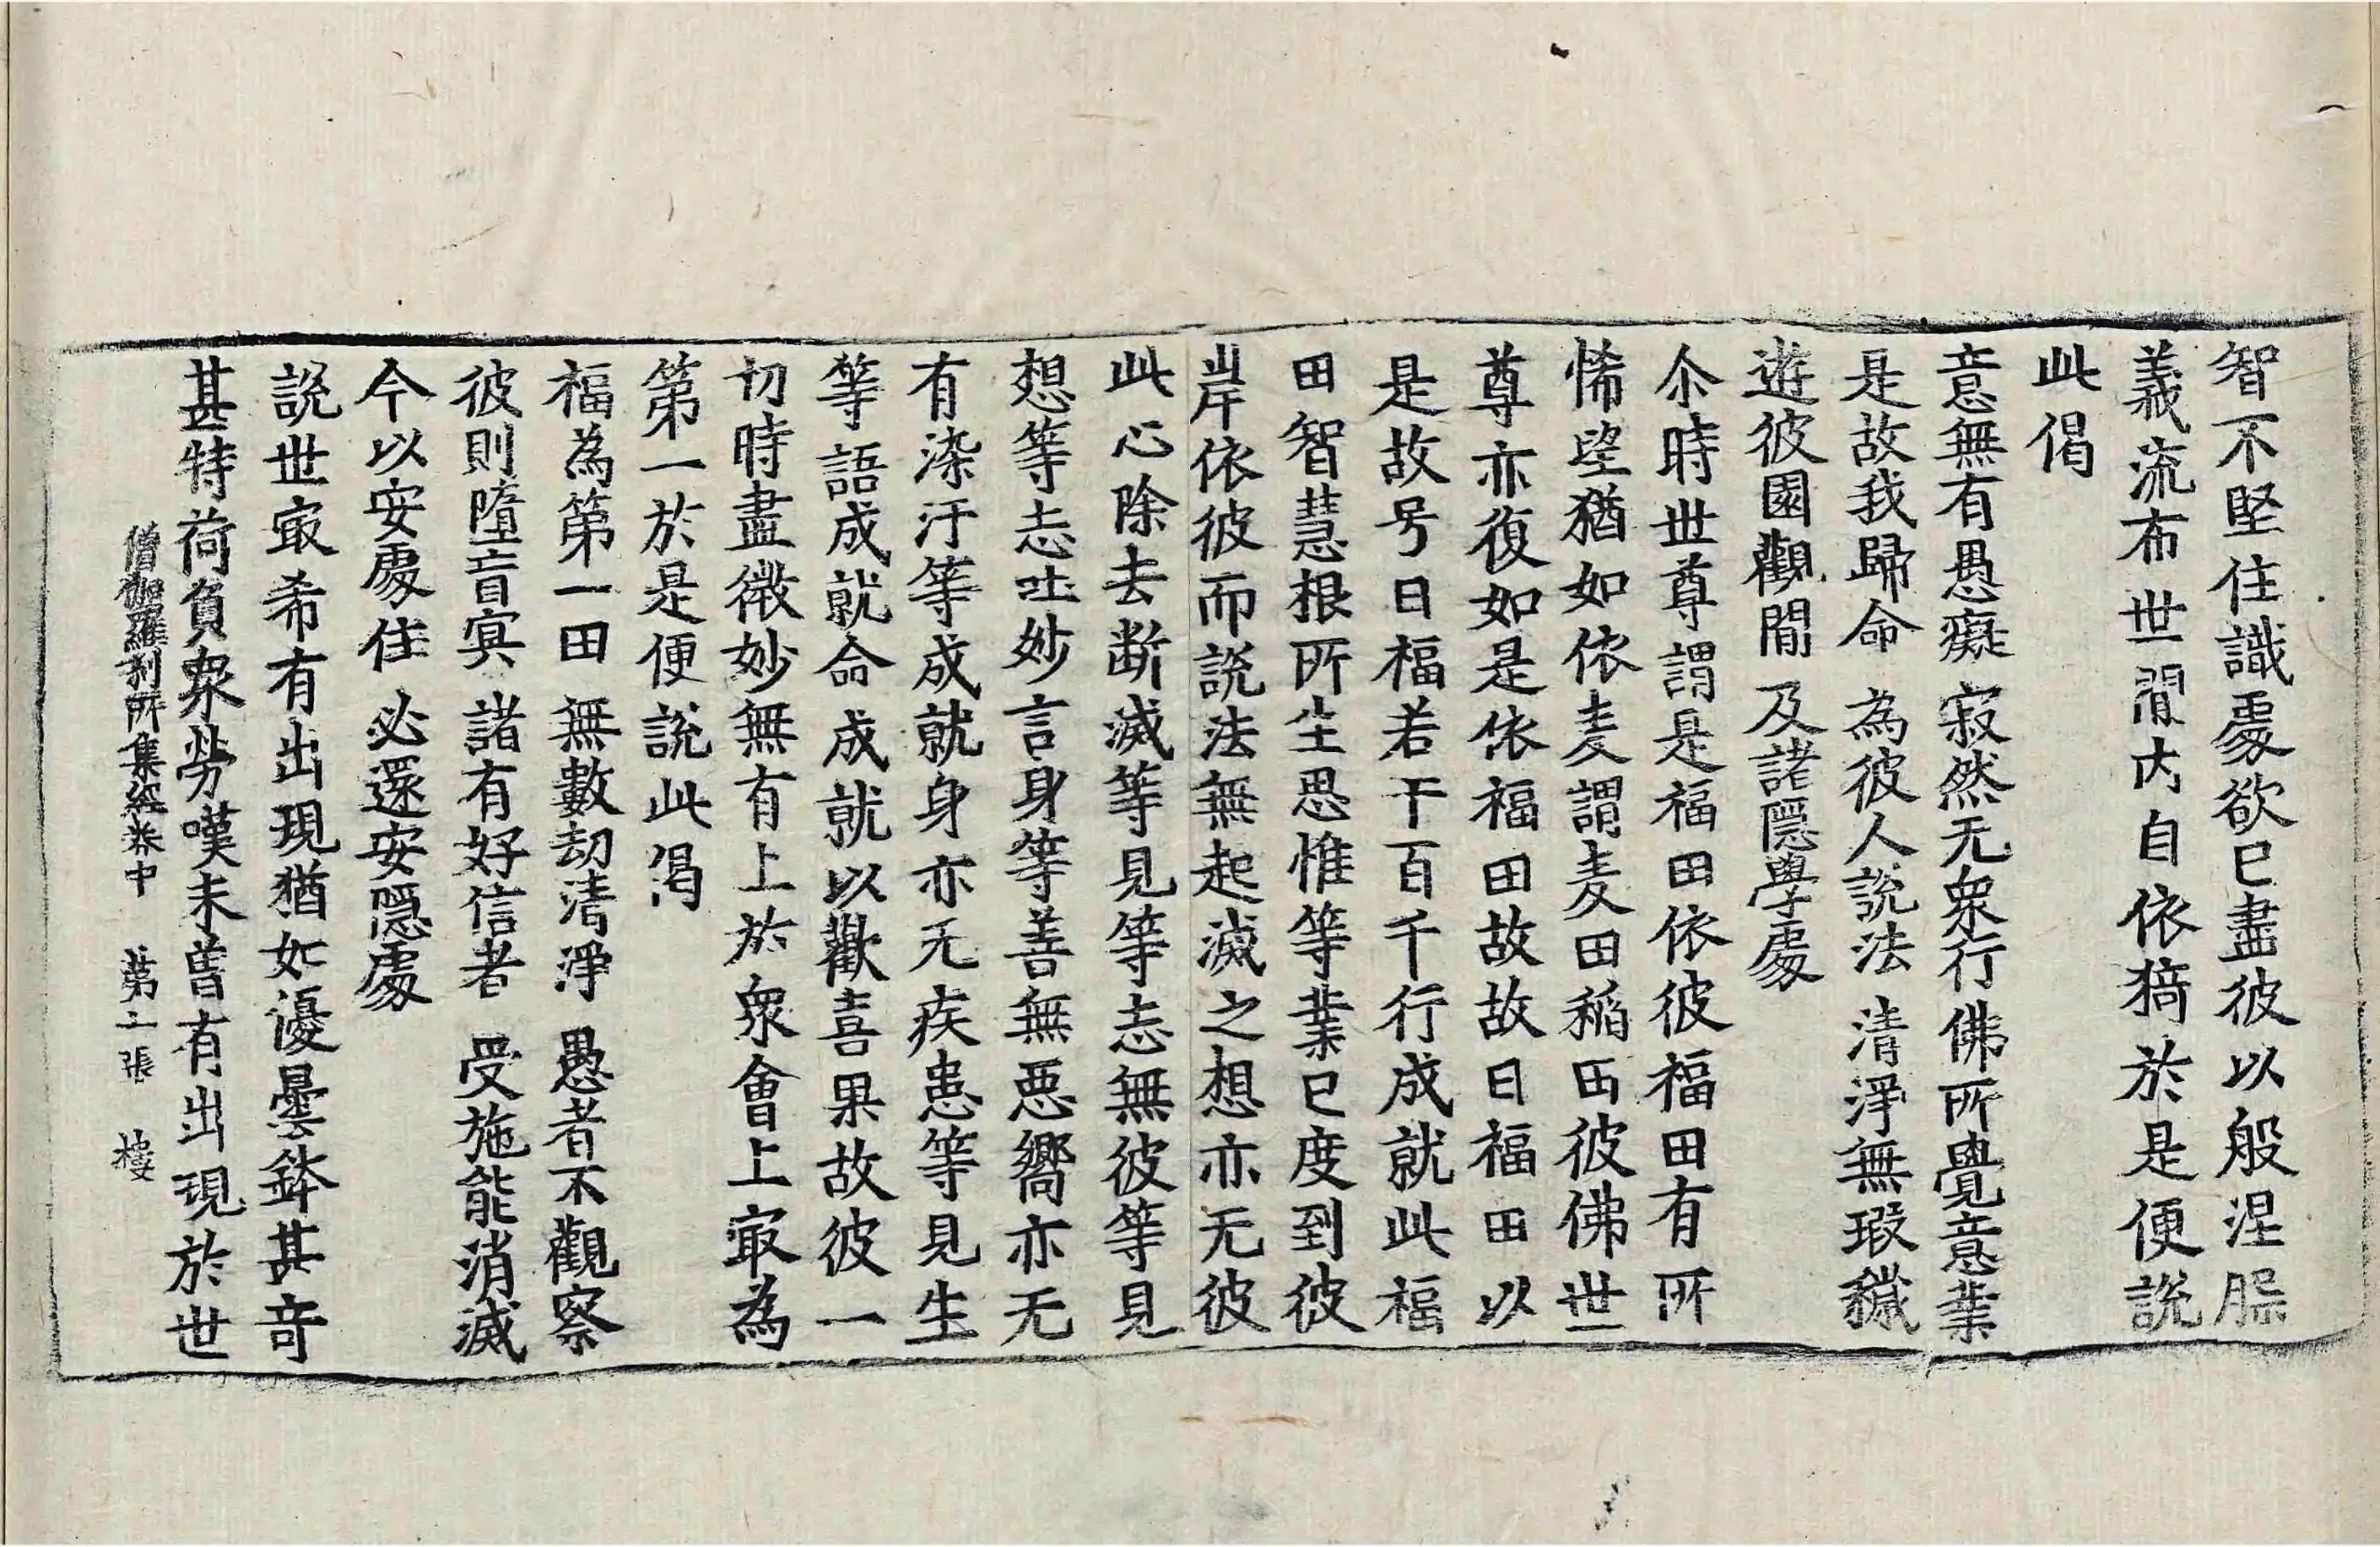 智不堅住識處欲已盡彼以般涅
義流布世間内自依猗於是便說
此偈
意無有愚癡 寂然无衆行 佛所覺意業
是故我歸命 為彼人說法 清淨無瑕穢
遊彼園觀間 及諸隱學處
尒時世尊謂是福田依彼福田有所
悕望猶如依麦謂麦田稻田彼佛世
尊亦復如是依福田故故曰福田以
是故号曰福若干百千行成就此福
田智慧根所生思惟等業已度到彼
岸依彼而說法無起滅之想亦无彼
此心除去断滅等見等志無彼等見
想等志吐妙言身等善無惡嚮亦无
有染汙等成就身亦无疾患等見生
等語成就命成就以歡喜果故彼一
切時盡微妙無有上於衆會上㝡為
第一於是便說此偈
福為第一田 無數劫清淨 愚者不觀察
彼則墮盲㝠 諸有好信者 受施能消滅
今以安處住 必還安隱處
說世㝡希有出現猶如優曇鉢甚奇
甚特荷負衆勞嘆未曾有出現於世
僧伽羅刹所集經卷中 第二張 樓